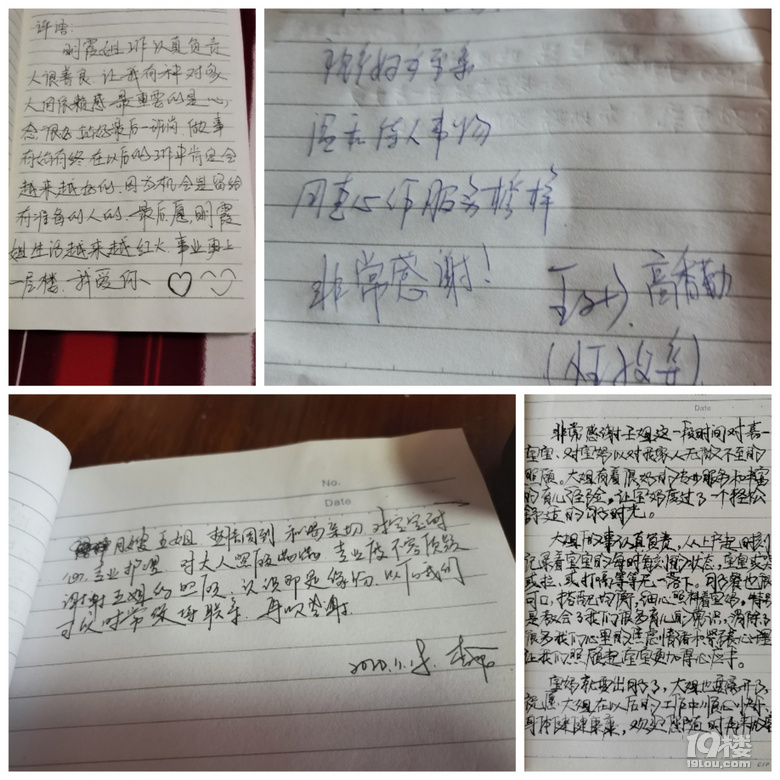 评语:
刚霞姐工作认真负责
人很善良.让我有种对家
人的依赖感.最重要的是心
态很好.站好最后一班岗.做事
有始有终.在以后的工作中肯定会
越来越好的.因为机会是留给
有准备的人的.最后愿刚霞
姐生活越来越红火.事业更上
一层楼.我爱你、♡
温和待人事物
用真心作服务榜样
非常感谢!
高香勤
No.
Date
月嫂王姐 周到 和蔼亲切 对宝宝耐
心专业护理 对大人照顾 专业度不容质疑
谢谢王姐的照顾,认识即是缘分,以后我们
可以时常保持联系,再次感谢.
2020.11.15.
Date
非常感谢王姐这一段时间对喜
宝宝、对宝妈以对我家人无微不至的
照顾。大姐有着很好的专业服务和丰富
的育儿经验,让宝妈度过了一个轻松
舒适的月子时光。
大姐做事认真负责,从上户起时刻
记录着宝宝的每时每刻的状态,宝宝或
或拉、或打嗝等等无一落下。月子餐也很
可口,搭配均衡,细心照料着宝妈,特别
是教会了我们很多育儿的常识,消除了
很多我们心里的焦虑情绪和紧张心理
让我们照顾起宝宝更加得心应手。
宝妈就要出月子了,大姐也要离开了
祝愿大姐在以后的工作中顺心顺
身体健健康康,欢迎随时再来
19楼
19lou.com